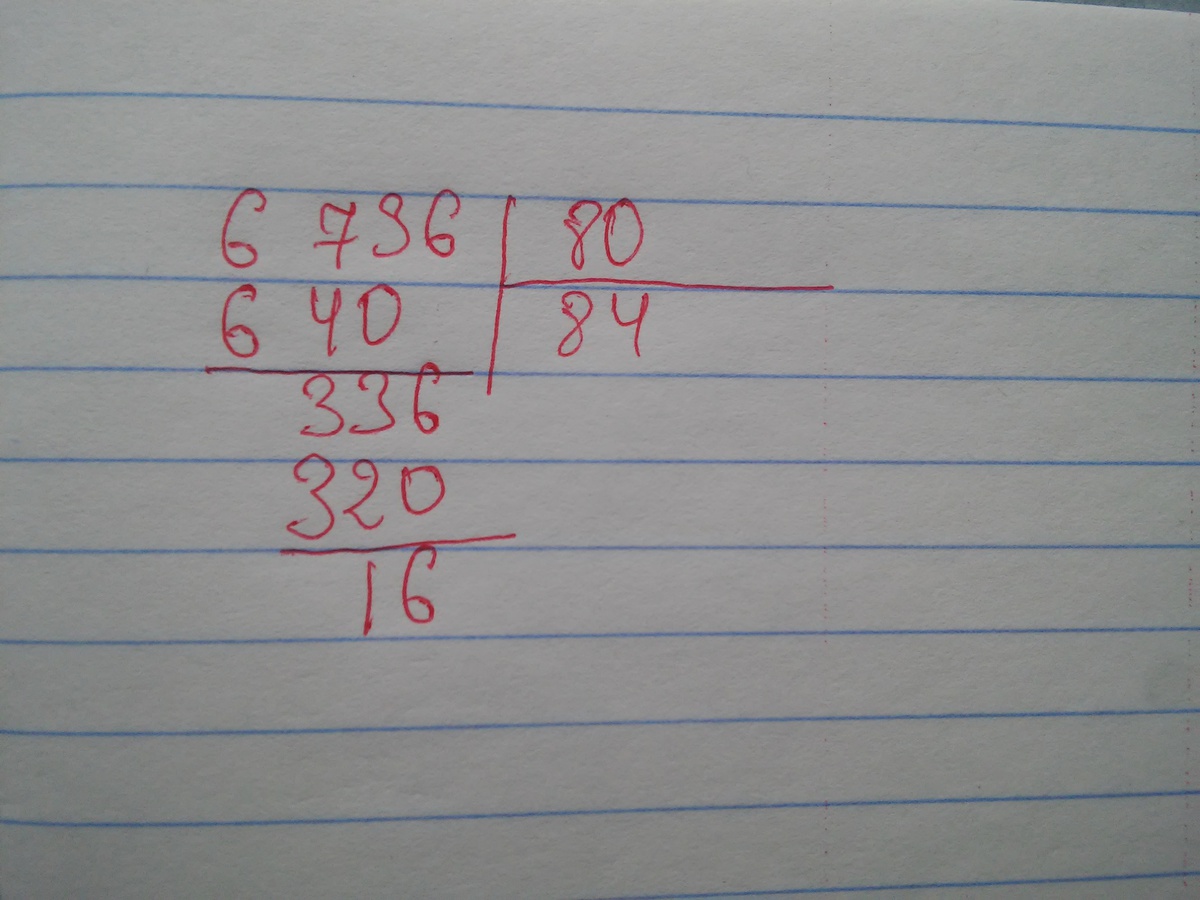 6 736 | 80
6 40 | 84
336
320
16